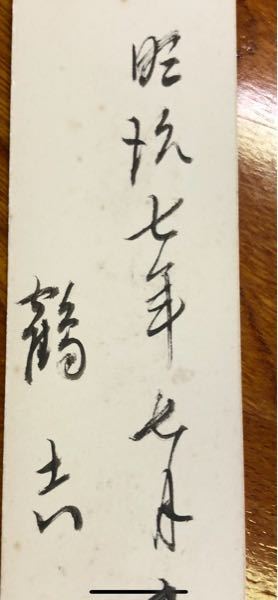 昭和七年七月
鶴吉